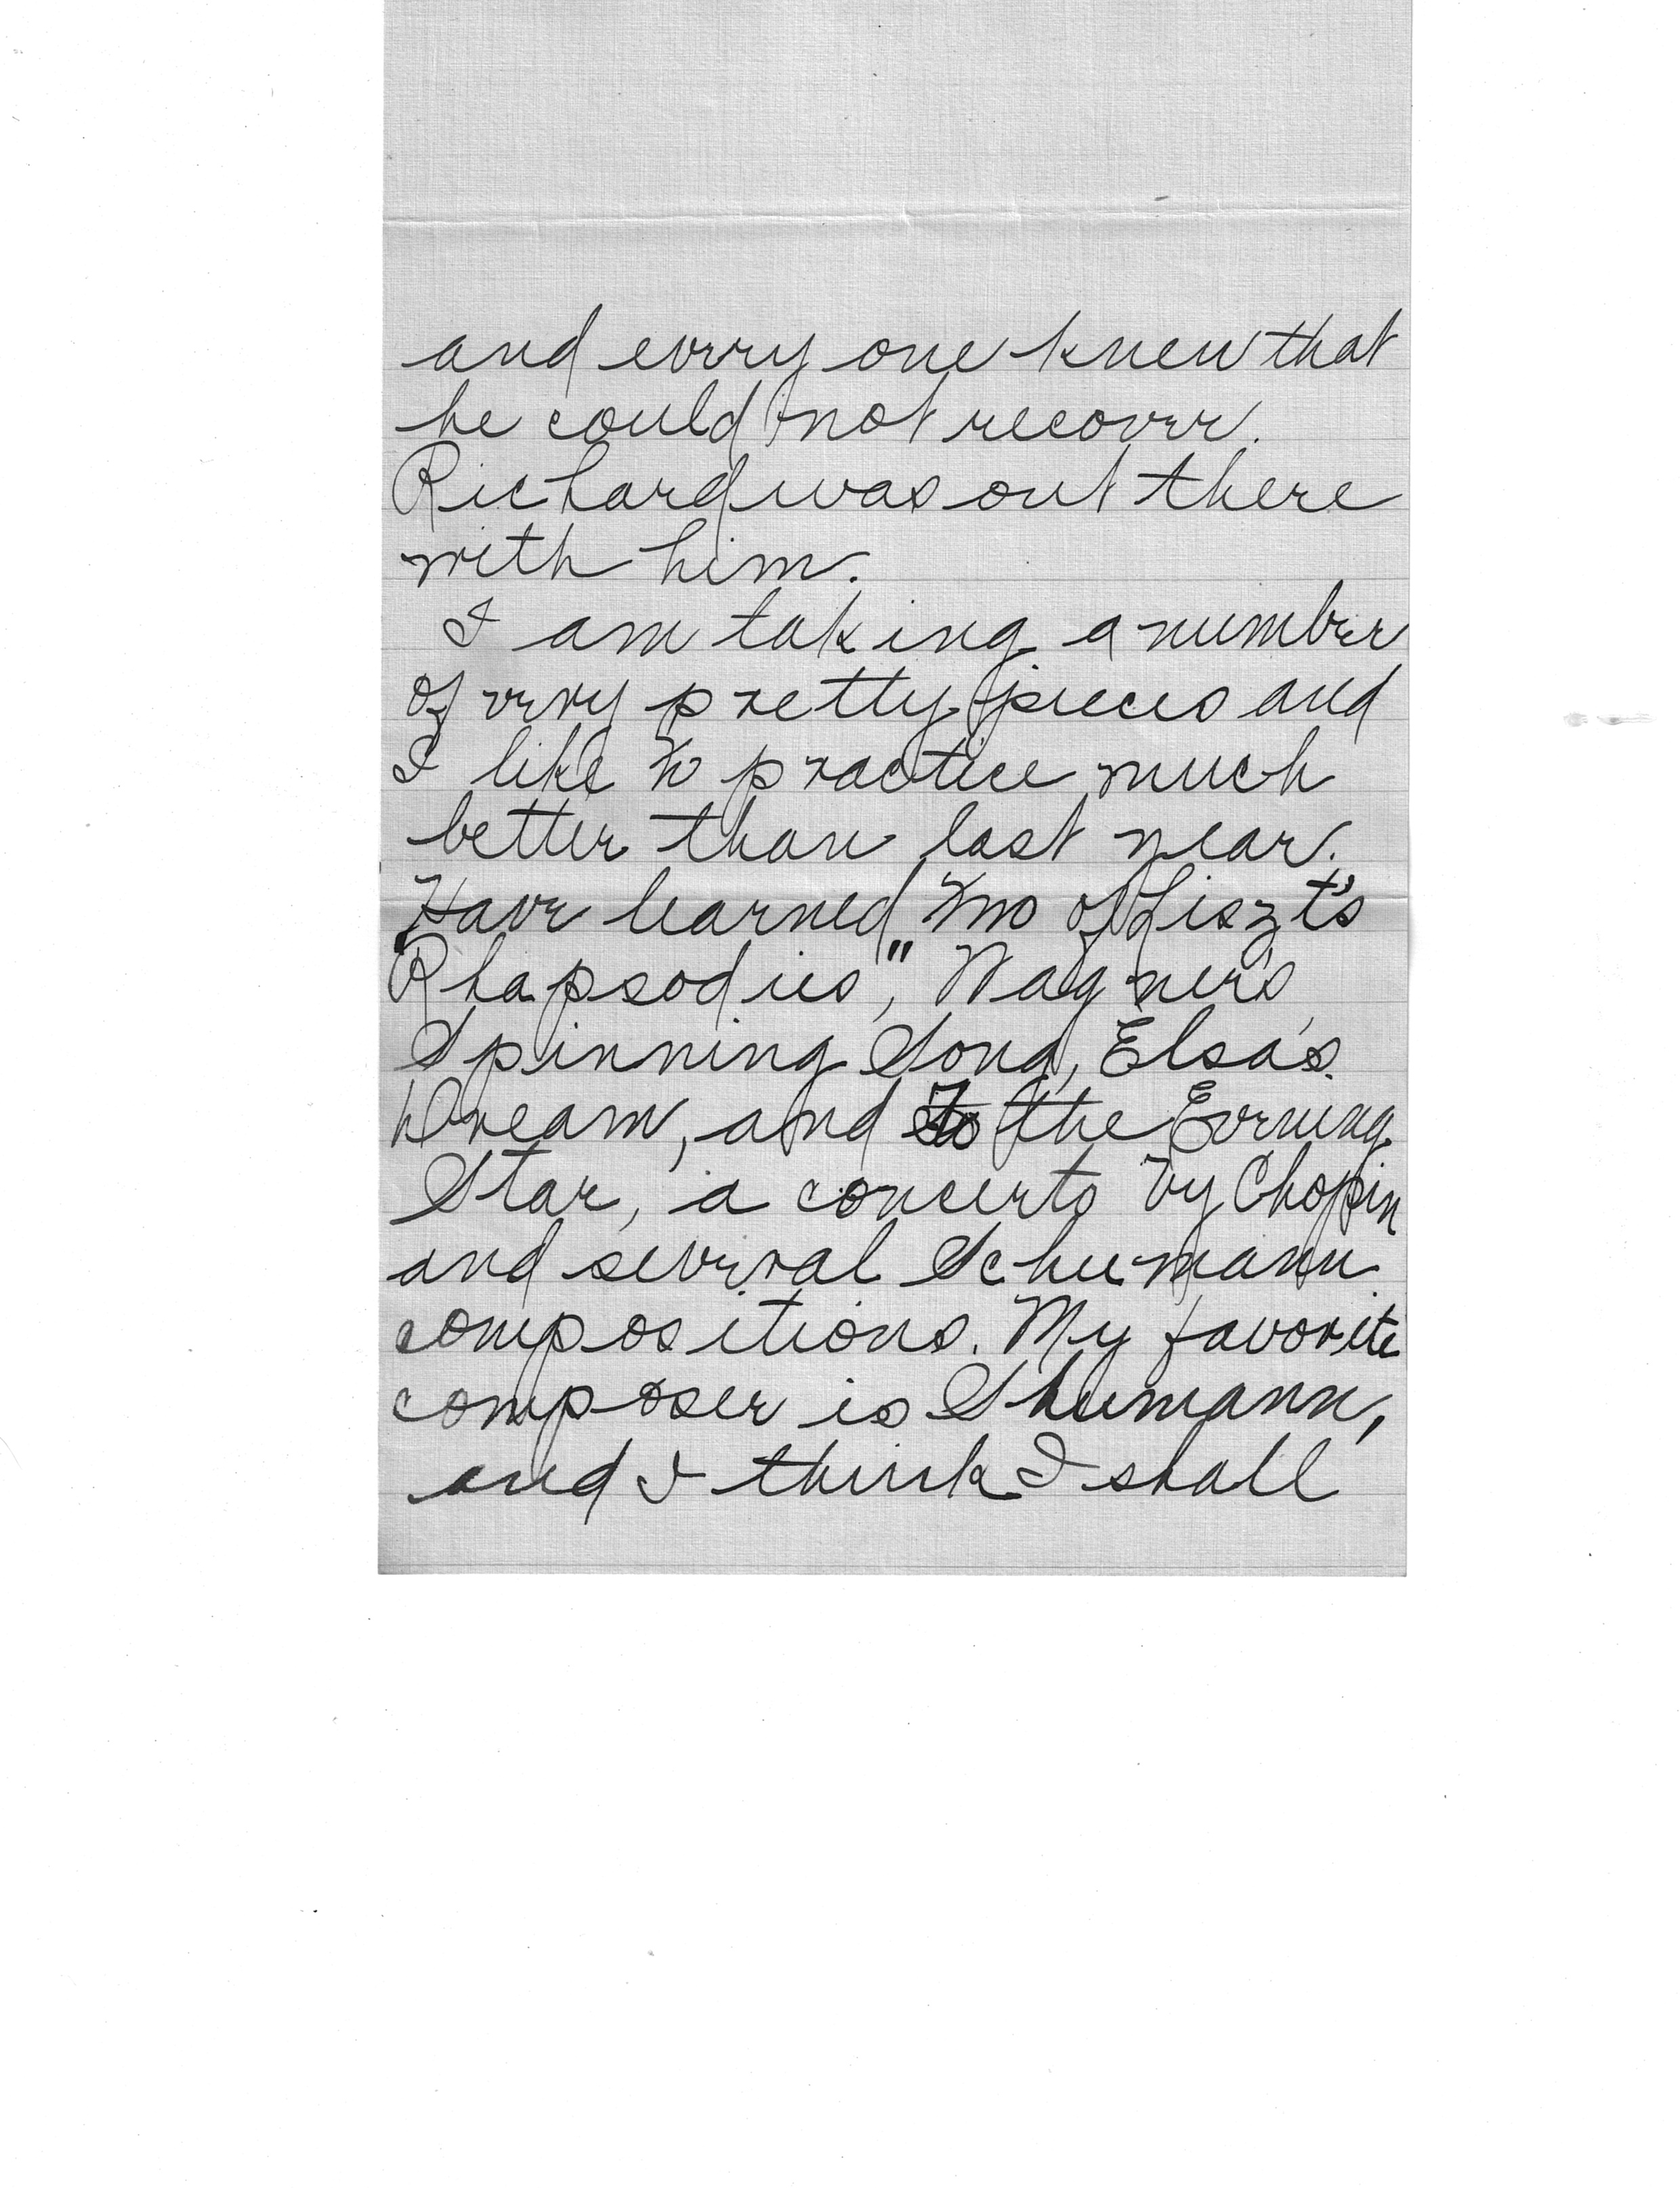 and every one knew that
he could not recover.
Richard was out there
with him.
I am taking a number
of very pretty pieces and
I like to practice much
better than last year.
Have learned two of Liszt's
"Rhapsodies", Wagner's
Spinning Song, Elsa's
Dream, and To the Evening
Star, a concerto by Chopin
and several Schumann
compositions. My favorite
composer is Shumann,
and I think I shall